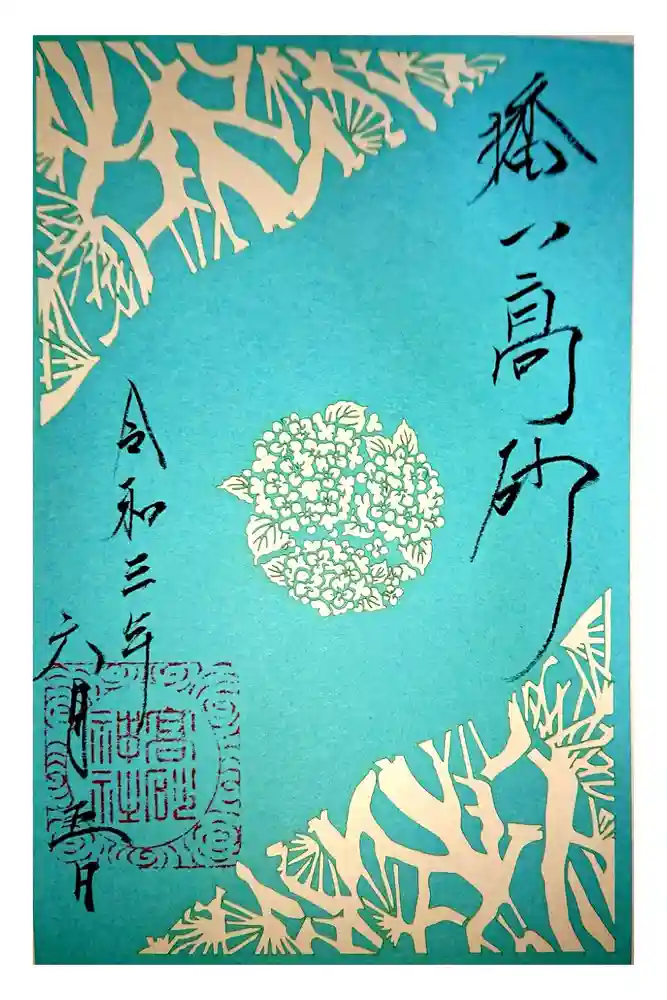 播州高砂
令和三年
六月五日
高砂
神社